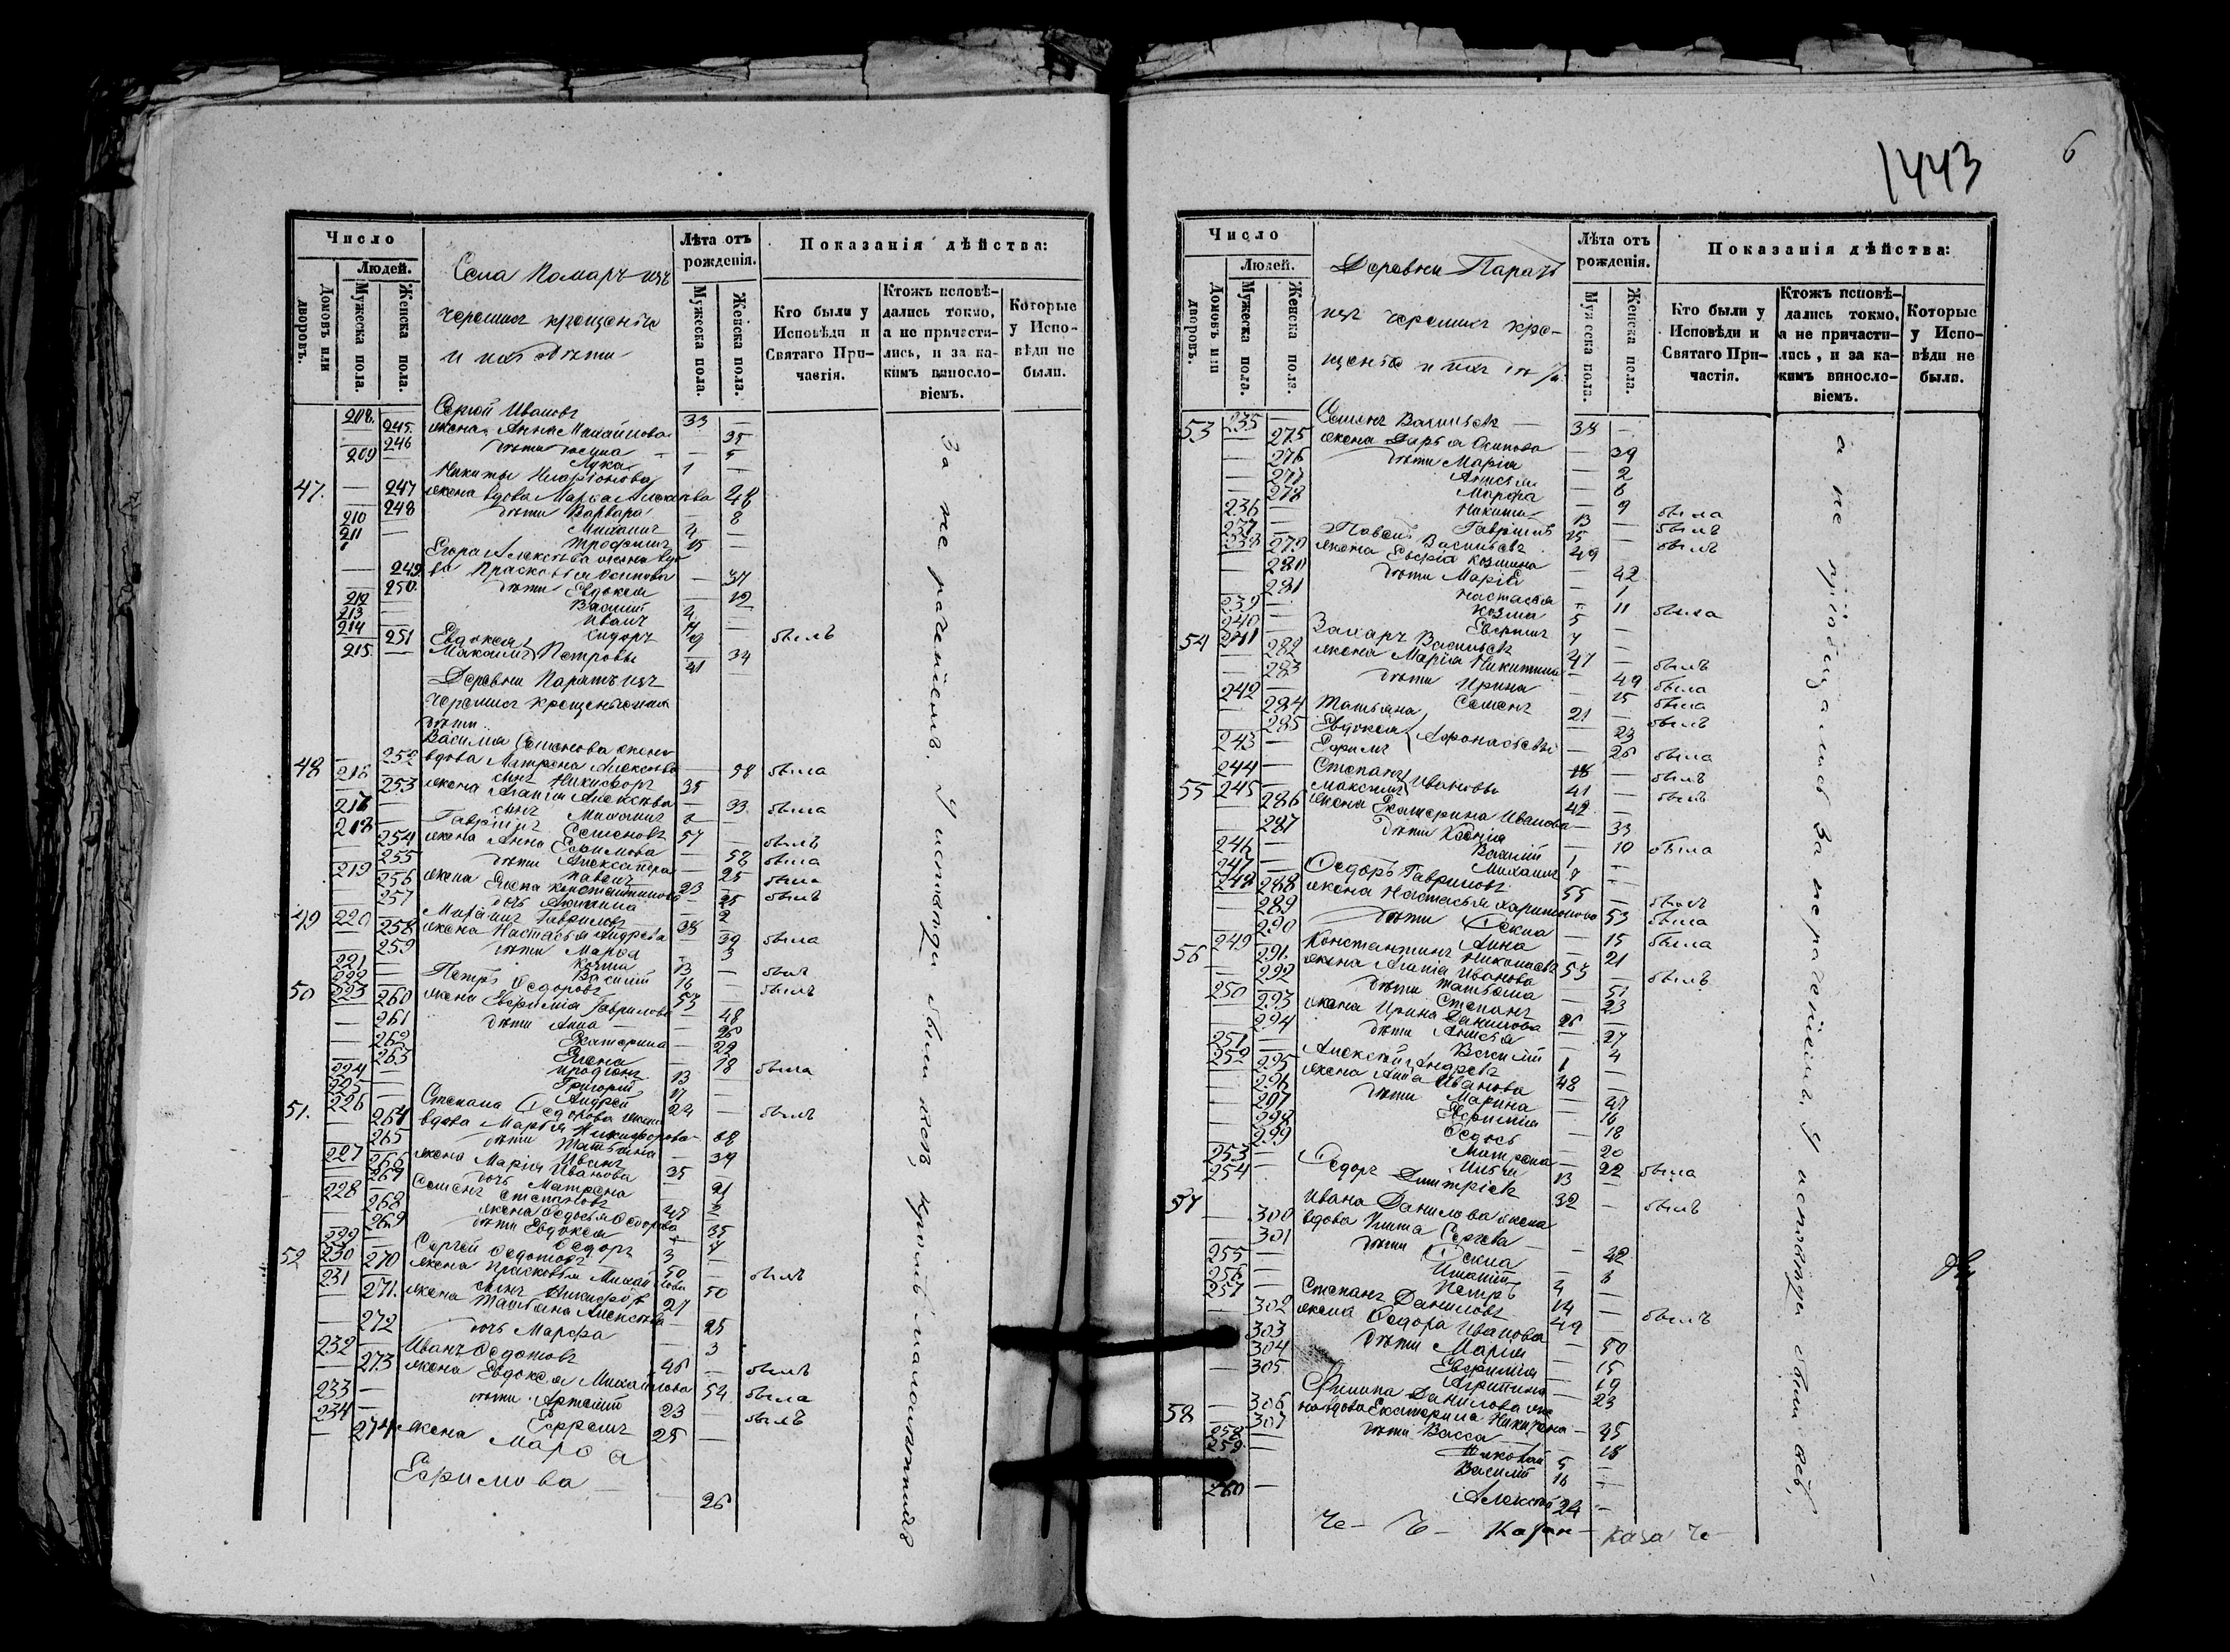 1443
6
Число
Людей.
Домовъ или дворовъ.
Мужеска пола.
Женска пола.
Села Помаръ изъ
черемисъ крещеные
и ихъ дѣти
Лѣта отъ рожденія.
Мужеска пола.
Женска пола.
Показанія дѣйства:
Кто были у Исповѣди и Святаго Причастія.
Ктожъ исповѣдались токмо, а не причастились, и за какимъ винословіемъ.
Которые у Исповѣди не были.
208. — Сергѣй Ивановъ 33 —
245. жена Анна Михайлова — 35
246 дѣти — 5
209 — Лука 1 —
Никиты Иларіонова
47. — 247 жена вдова Марѳа Алексѣева 48
248 дѣти Варвара — 8
210 — Михаилъ 4 —
211 — Трофимъ 15 —
Егора Алексѣева жена вдо
249 ва Прасковья Осипова — 37
250 дѣти Евдокея — 12
212 — Василій 4 —
213 — Иванъ —
214 — Сидоръ 19 — былъ
251 Евдокея — 34
215 — Максимъ Петровы 41 —
Деревни Паратъ изъ
черемисъ крещеные ихъ
дѣти
Василія Семенова жена
48 — 252 вдова Матрена Алексѣева — 58 была
216 — сынъ Никифоръ 35
253 жена Агапія Алексѣева — 33 была
217 — сынъ Михаилъ —
218 — Гаврилъ Семеновъ 57 былъ
254 жена Анна Ефимова — 58 была
255 дѣти Александра — 25 была
219 — Павелъ 23 — былъ
256 жена Елена Константинова — 25
257 дочь — 2
49 220 — Михаилъ Гавриловъ 38
258 жена Настасья Андреева — 39 была
259 дѣти Марѳа — 3
221 — Козма 13 — былъ
222 — Василій 16 — былъ
50 223 — Петръ Ѳедоровъ 53
260 жена Евфимія Гаврилова — 48
261 дѣти Анна — 20
262 Екатерина — 22
263 Елена — 18 была
224 — Иродіонъ 13
225 — Григорій 17
226 — Андрей 24 — былъ
51. Степана Ѳедорова жена
264 вдова Марья Никифорова — 68
265 дѣти Татьяна — 39
227 — Иванъ 35
266 жена Марія Ивановa — 21
267 дочь Матрена
228 — Семенъ Степановъ 47
268 жена Ѳедосья Ѳедорова 35
269 дѣти Евдокея 7
229 — Ѳедоръ 3
52 230 — Сергѣй Ѳедотовъ 50 — былъ
270 жена Прасковья Михайлова 50
231 — сынъ Никифоръ 27
271. жена Татьяна Алексѣева — 25
272 дочь Марѳа — 3
232 — Иванъ Ѳедотовъ 46 — былъ
273 жена Евдокея Михайлова 54 была
233 — дѣти Артемій 23 — былъ
234 — Ефремъ 25 —
274 жена Марѳа
Ефимова — 26
За не раченіемъ. У исповѣди были всѣ, кромѣ малолѣтнихъ
Число
Людей.
Домовъ или дворовъ.
Мужеска пола.
Женска пола.
Деревни Паратъ
изъ черемисъ кре-
щеные и ихъ дѣти
Лѣта отъ рожденія.
Мужеска пола.
Женска пола.
Показанія дѣйства:
Кто были у Исповѣди и Святаго Причастія.
Ктожъ исповѣдались токмо, а не причастились, и за какимъ винословіемъ.
Которые у Исповѣди не были.
53 235 — Семенъ Васильевъ 38 —
275 жена Дарья Осипова — 39
276 дѣти Марія — 2
277 Анисья — 6
278 Марѳа — 9 была
236 — Никита 13 — былъ
237 — Гавріилъ 15 — былъ
238 — Павелъ Васильевъ 49
279 жена Евфрія Козмина — 42
280 дѣти Марія — 1
281 Настасья — 11 была
239 — Козма 5 —
240 — Евфимъ 7 —
54 241 — Захаръ Васильевъ 47 — былъ
282 жена Марія Никитина — 49 была
283 дѣти Ирина — 15 была
242 — Семенъ 21 — былъ
284 Татьяна — 23
285 Евдокея Афонасьевы — 26 была
243 — Ефимъ 18 — былъ
244 — Степанъ 41 — былъ
55 245 — Максимъ Ивановы 42
286 жена Екатерина Иванова — 33
287 дѣти Ксенія — 10 была
246 — Василій 1 —
247 — Михаилъ 7 —
248 — Ѳедоръ Гавриловъ 55 — былъ
288 жена Настасья Харитонова 53 была
289 дѣти Ѳекла — 15 была
290 Анна — 21
56 249 — Константинъ Николаевъ 53 — былъ
291. жена Агапія Иванова — 51
292 дѣти Татьяна — 23
250 — Степанъ 26 —
293 жена Ирина Данилова — 27
294 дѣти Анисья — 4
251 — Василій 1 —
252 — Алексѣй Андреевъ 48 —
295 жена Анна Иванова — 47
296 дѣти Марина — 16
297 Евфимія — 18
298 Ѳедось — 20
299 Матрена — 22 была
253 — Илья 13 —
254 — Ѳедоръ Дмитріевъ 32 — былъ
57 Ивана Данилова жена
300 вдова Сергѣева — 42
301 дѣти Ѳекла — 8
255 — Игнатій 4 —
256 — Петръ 14 —
257 — Степанъ Даниловъ 49 — былъ
302 жена Ѳедора Иванова — 50
303 дѣти Марія — 15
304 Евфимія — 19
305 Агрипина — 23
Филипа Данилова же
58 — 306 на вдова Екатерина — 45
307 дѣти Васса — 18
258 — Николай 5 —
259. — Василій 16 —
260 — Алексѣй 24 —
а не пріобщались за нераченіемъ. У исповѣди были всѣ,